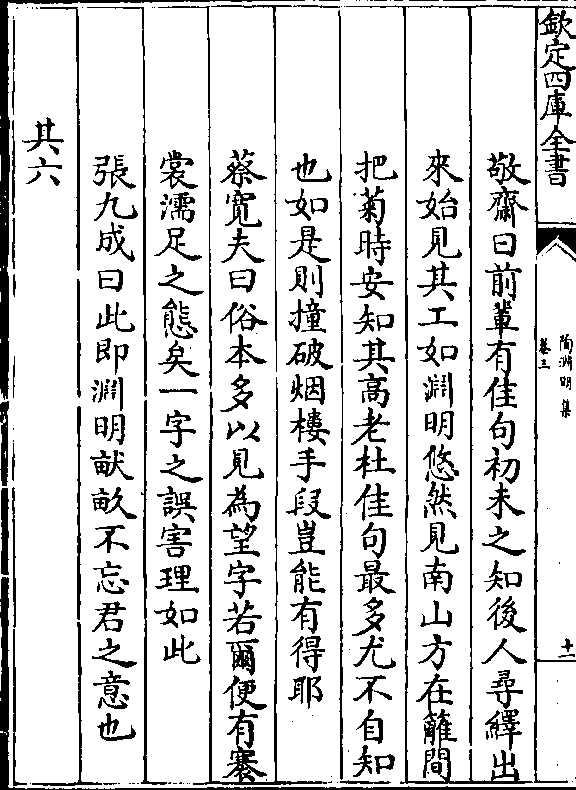 欽定四庫全書
陶淵明集
卷三
十一
敬齋曰前輩有佳句初未之知後人尋繹出
來始見其工如淵明悠然見南山方在籬間
把菊時安知其高老杜佳句最多尤不自知
也如是則撞破烟樓手段豈能有得耶
蔡寬夫曰俗本多以見為望字若爾便有褰
裳濡足之態矣一字之誤害理如此
張九成曰此即淵明畎畝不忘君之意也
其六